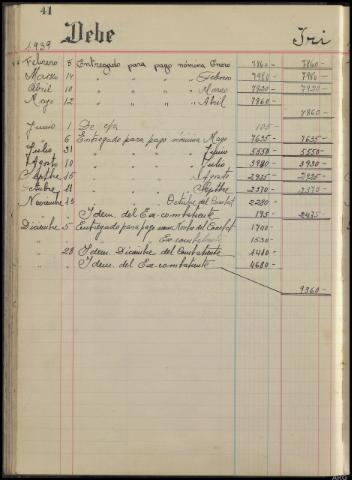 41
Debe
Tri
1939
Febrero 5 Entregado para pago nómina Enero 7860- 7860-
Marzo 14 " " " " Febrero 7980- 7980-
Abril 10 " " " " Marzo 7920- 7920-
Mayo 12 " " " " Abril 7860-
7860-
Junio 1 De c/a 105-
" 6 Entregado para pago nómina Mayo 7635- 7635-
Julio " " " Junio 5550- 5550-
Agosto 10 " " " Julio 3930- 3930-
Septbre 15 " " " Agosto 2925- 2925-
Octubre 11 " " " Septbre 2370- 2370-
Noviembre 13 Octubre del Combat 2280-
" " Idem. del Ex-combatiente 195- 2475-
Diciembre 5 Entregado para pago 1740-
" " Ex-combatiente 1530-
" 28 Idem. Diciembre del Combatiente 1410-
" " Idem. del Ex-combatiente 4680-
9360-